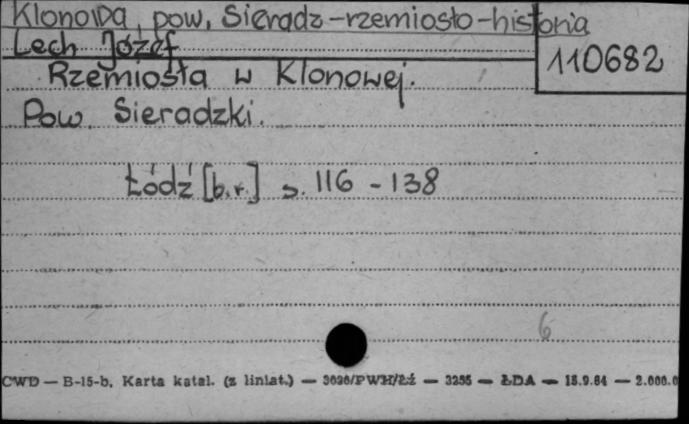 Klonowa, pow. Sieradz-rzemiosło-historia
Lech Józef
110682
Rzemiosła w Klonowej.
Pow. Sieradzki.
Łódź [b.r.] s. 116 - 138
6
CWD — B-15-b. Karta katal. (z liniat.) — 3030/PWH/Łź — 3255 — ŁDA — 15.9.64 — 2.000.0